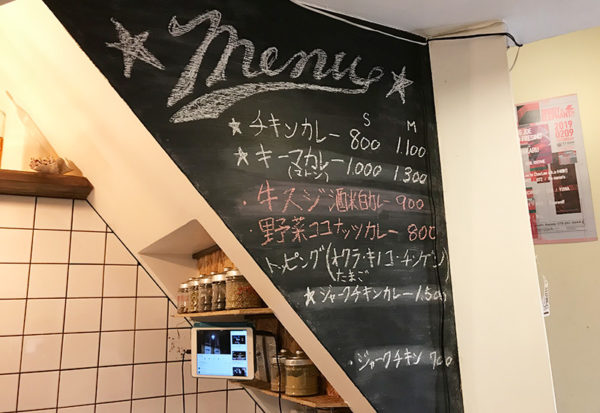 ☆ Menu ☆
S M
☆ チキンカレー 800 1.100
☆ キーマカレー 1.000 1.300
(マトン)
・牛スジ酒粕カレー 900
・野菜ココナッツカレー 800
トッピング(オクラ・キノコ・チンゲン)
たまご
☆ ジャークチキンカレー 1.500
・ジャークチキン 700
2019
0209